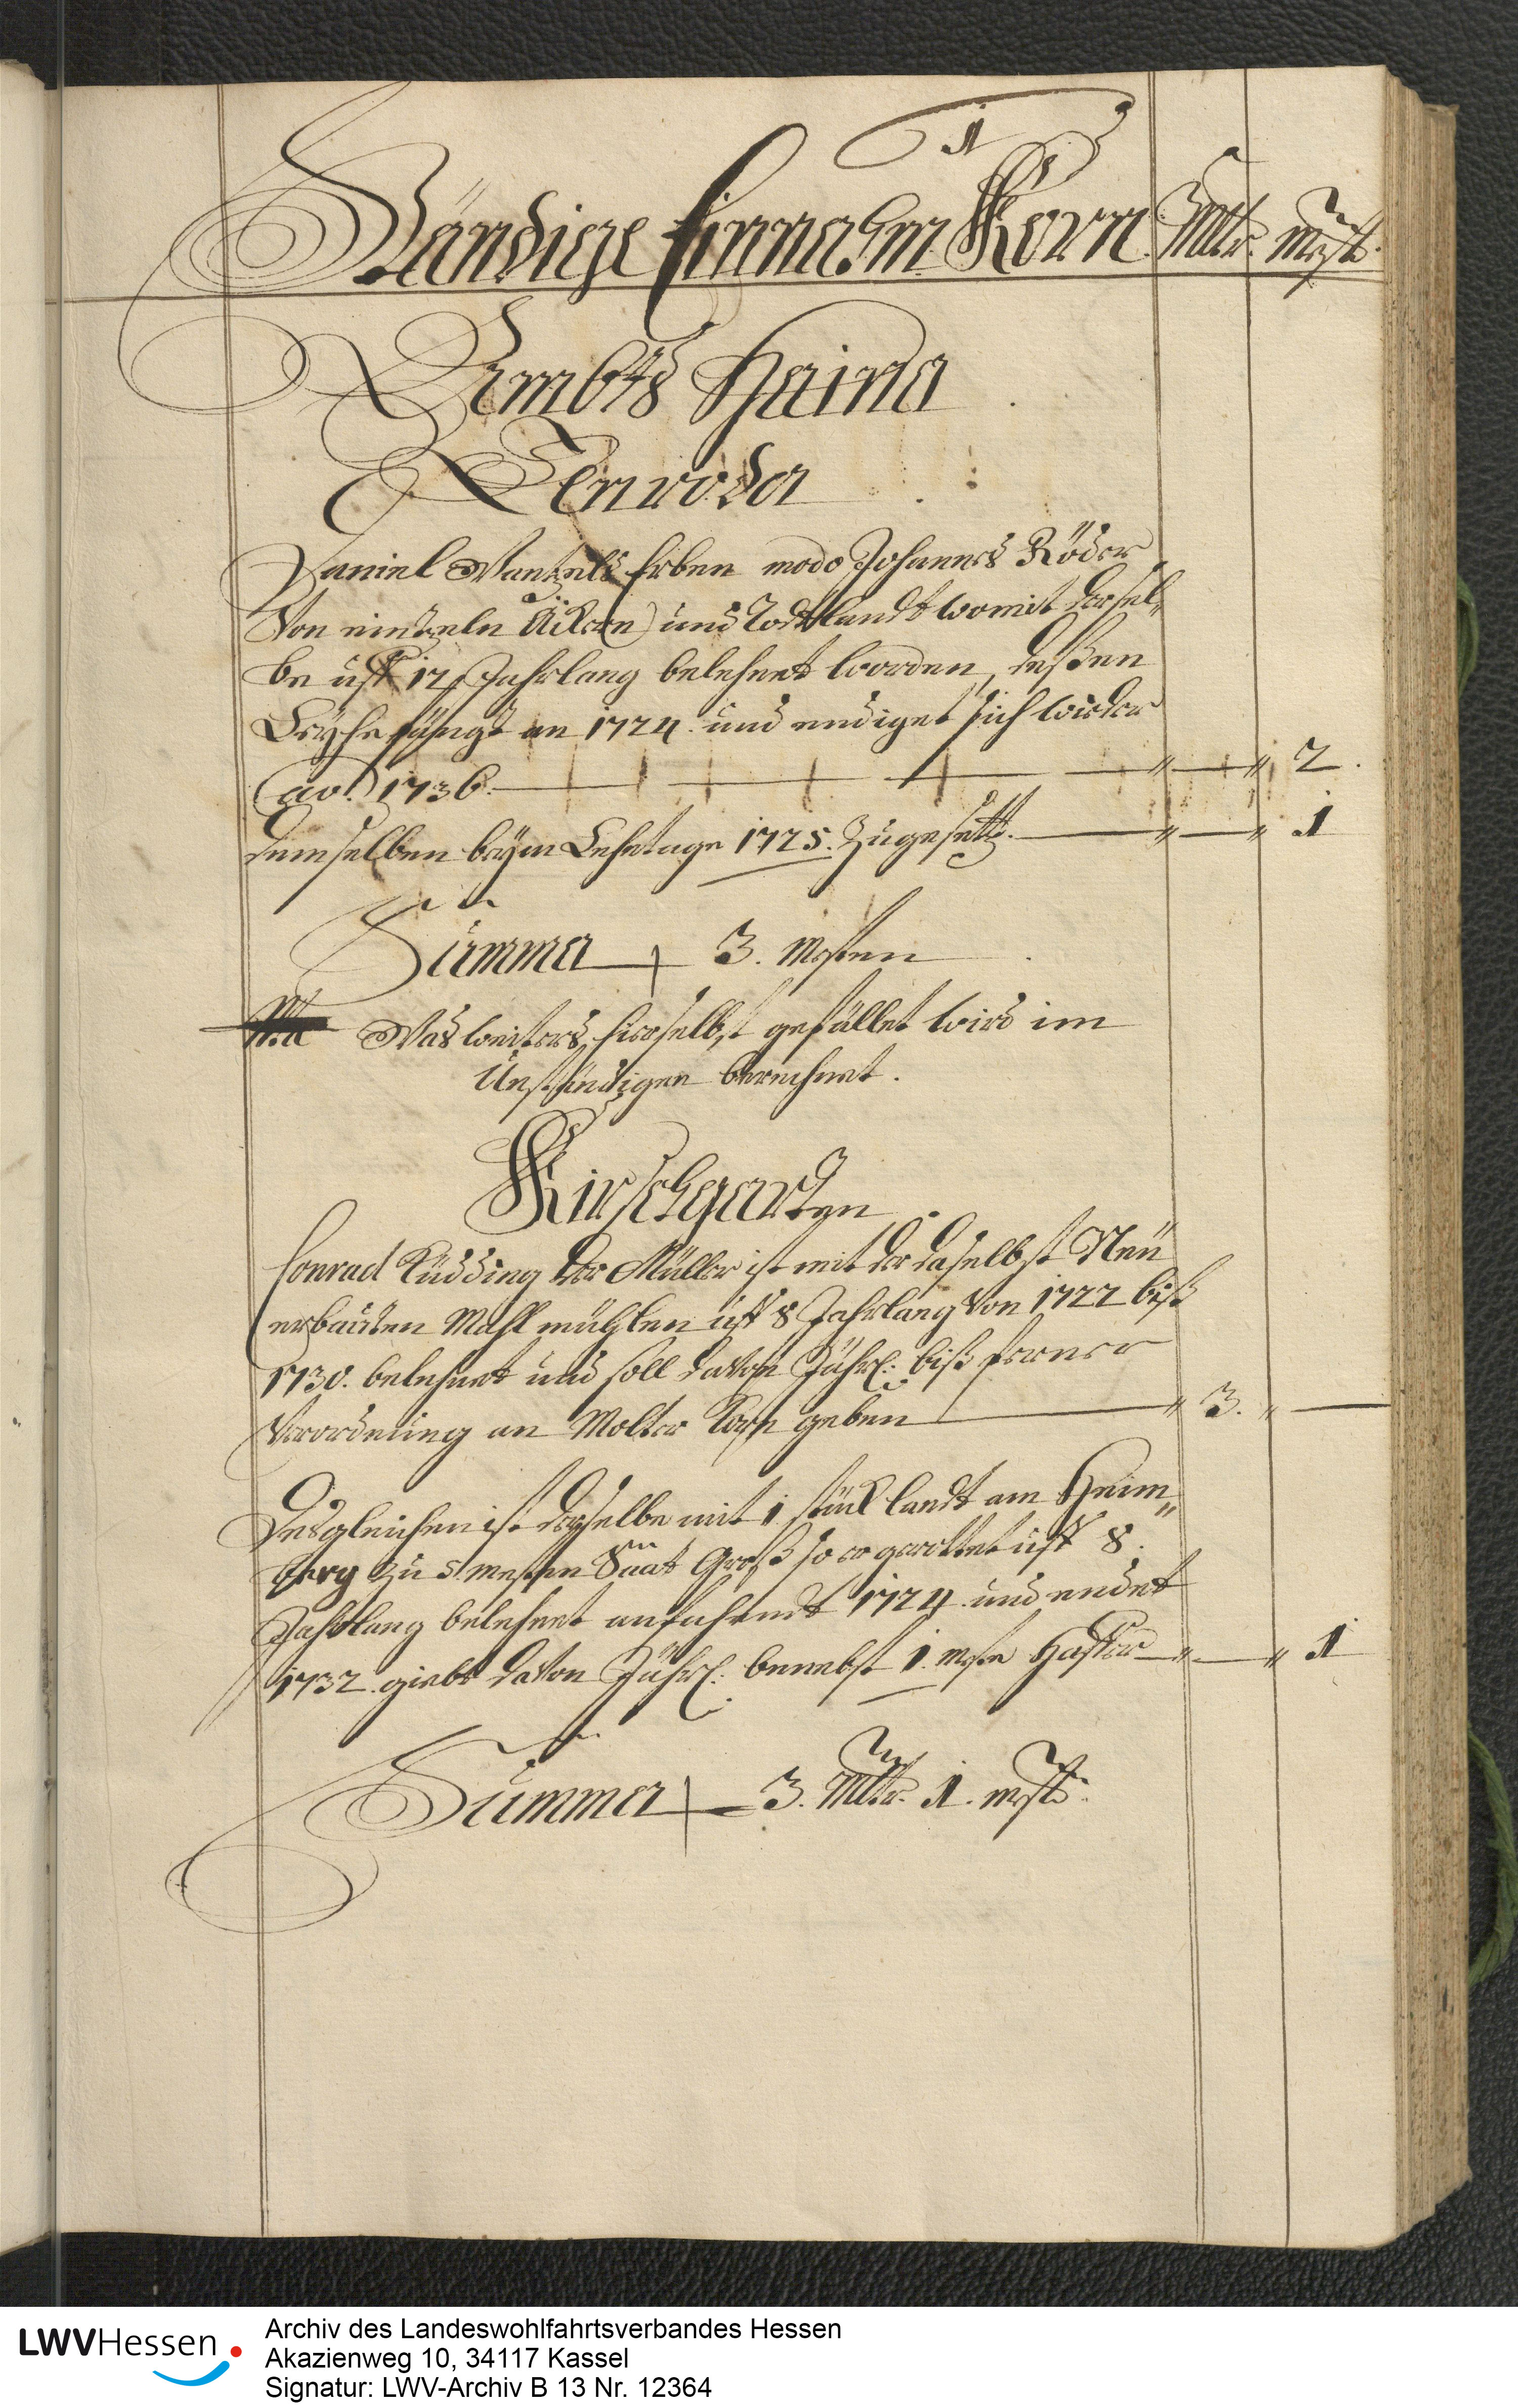 1
Ständige Einnahm Korn. Mltr. mest.
Ambts Haina
Lenroda
Daniel Wentzels Erben modo Johannes Röder
Von eintzeln Äckern und Rodtlandt womit dersel-
be uff 12 Jahrlang belehnet worden, deßen
Leyhe fängt an 1724. und endiget sich wieder
ao. 1736. — „ — „ 2.
demselben beym Lehntage 1725. zugesetzt. — „ — „ 1
Summa 3. Mesten
Nta Was weiters hierselbst gefället wird im
Unständigen berechnet.
Kirschgarten
Conrad Rudding der Müller ist mit der daselbst Neu
erbauten Mahlmühlen uff 8 Jahrlang Von 1722 biß
1730. belehnet und soll davon Jährl: biß ferner
Verordnung an Molter Korn geben — „ 3. „ —
Desgleichen ist derselbe mit 1 stück landt am Heim-
berg zu 5 mesten Saat Groß so er gerottet uff 8.
Jahrlang belehnet anfahendt 1724 und endet
1732. giebt davon Jährl: benebst 1. meste Haffer — „ — „ 1
Summa 3. Mltr. 1. mest.
LWVHessen
Archiv des Landeswohlfahrtsverbandes Hessen
Akazienweg 10, 34117 Kassel
Signatur: LWV-Archiv B 13 Nr. 12364